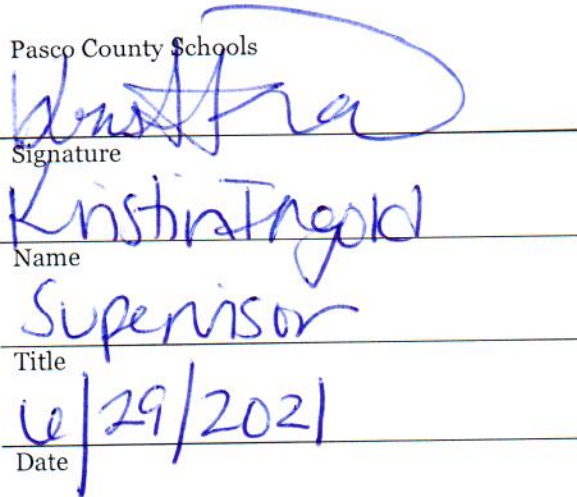 Pasco County Schools
Signature
Kristin Ingold
Name
Supervisor
Title
6/29/2021
Date